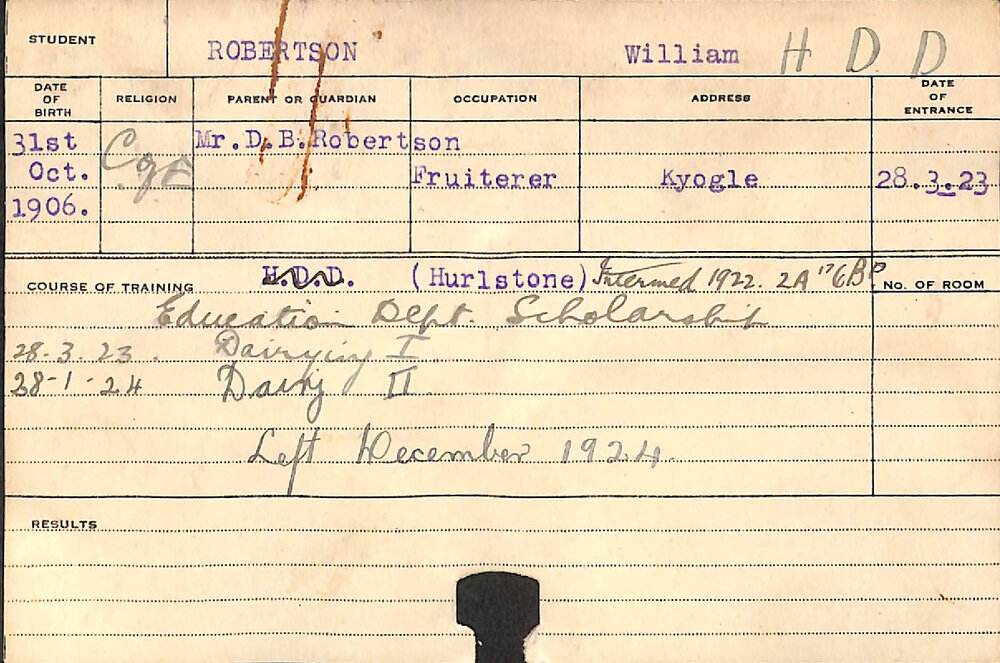 STUDENT ROBERTSON William H D D
DATE OF BIRTH RELIGION PARENT OR GUARDIAN OCCUPATION ADDRESS DATE OF ENTRANCE
31st Mr. D. B. Robertson
Oct. Fruiterer Kyogle 28.3.23
1906.
COURSE OF TRAINING H.D.D. (Hurlstone) Intermed 1922. 2A's 6B's No. OF ROOM
Education Dept. Scholarship
28.3.23. Dairying I
28-1-24 Dairy II
Left December 1924.
RESULTS